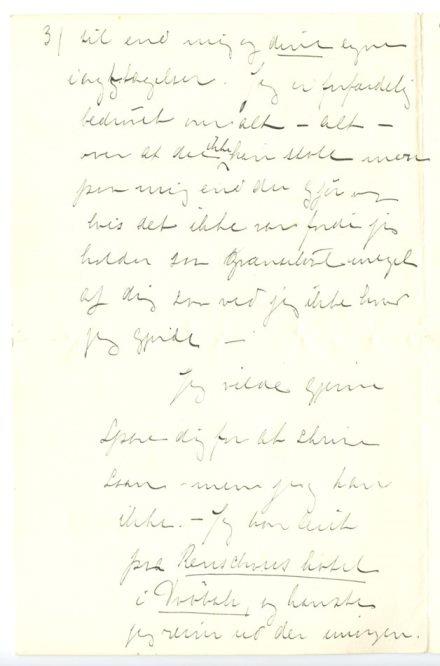 3/ til end mig og dine egne
iagttagelser. Jeg er forfærdelig
bedrøvet over alt – alt –
over at du ikke kan stole mere
paa mig end du gjør og
hvis det ikke var fordi jeg
holder saa grænseløst meget
af dig saa ved jeg ikke hvad
jeg gjorde —
Jeg vilde gjerne
spare dig for at skrive
saan – men jeg kan
ikke. – Jeg bor
paa hotel
i og kanske
jeg reiser ud der imorgen.